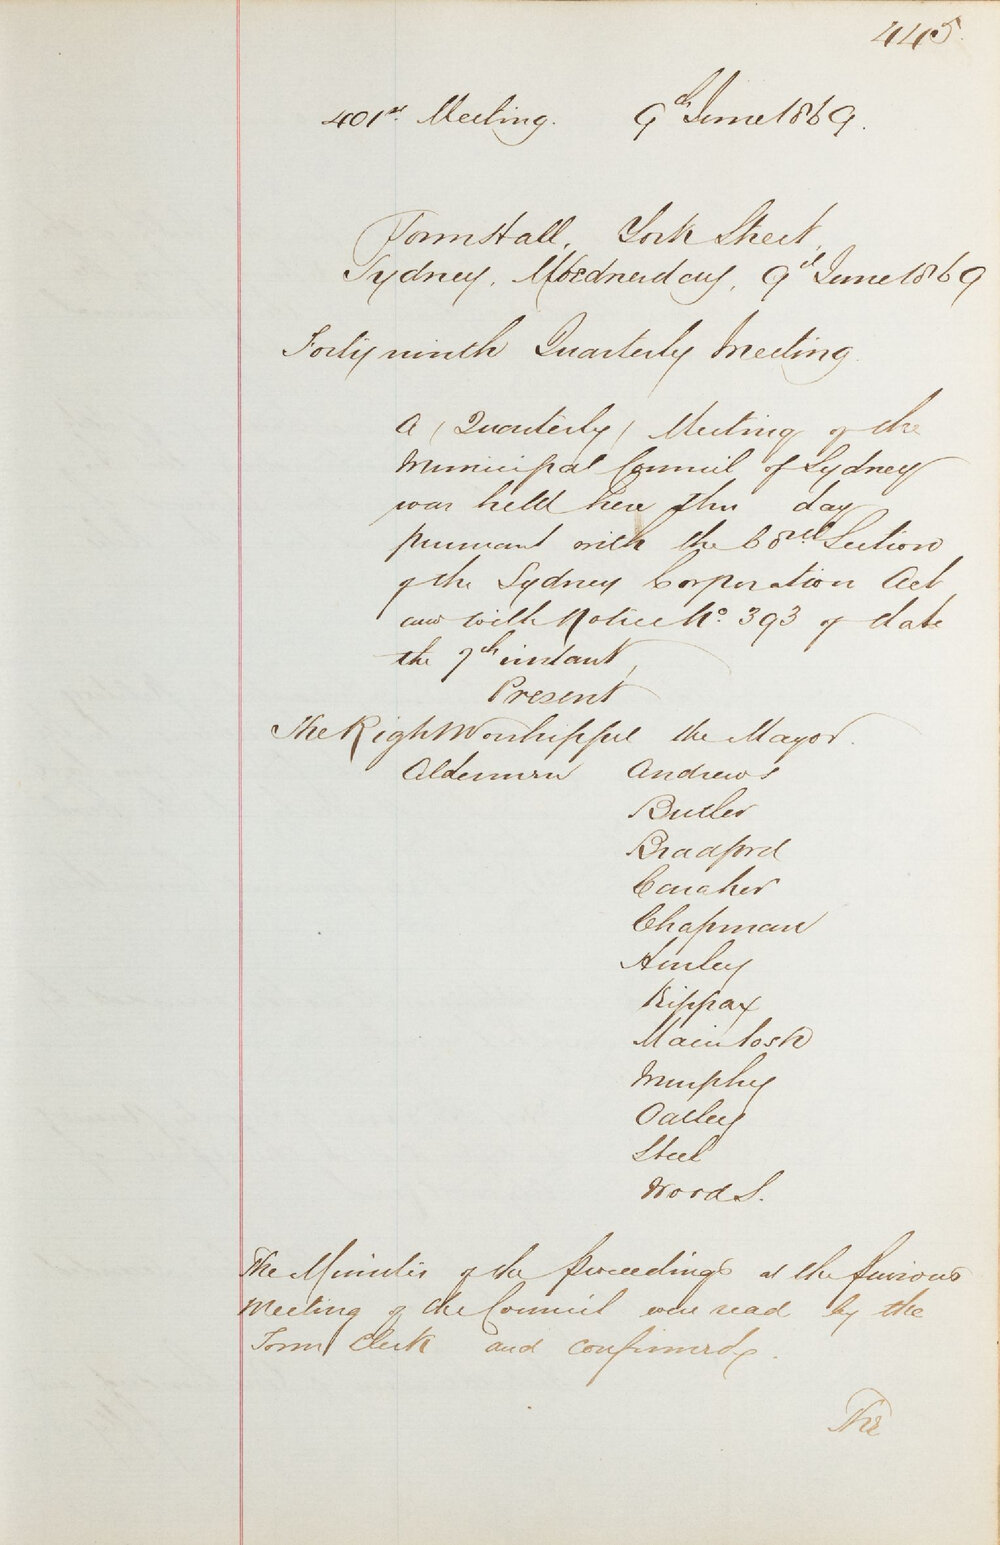 445.
401st Meeting. 9th June 1869.
Town Hall, York Street,
Sydney, Wednesday, 9th June 1869
Forty ninth Quarterly Meeting.
A (Quarterly) Meeting of the
Municipal Council of Sydney
was held here this day
pursuant with the 68th Section
of the Sydney Corporation Act
and with Notice No. 393 of date
the 7th instant,
Present
The Right Worshipful the Mayor.
Aldermen Andrews
Butler
Bradford
Caraher
Chapman
Hurley
Kippax
Macintosh
Murphy
Oatley
Steel
Wood S.
The Minutes of the proceedings at the previous
Meeting of the Council were read by the
Town Clerk and confirmed.
The